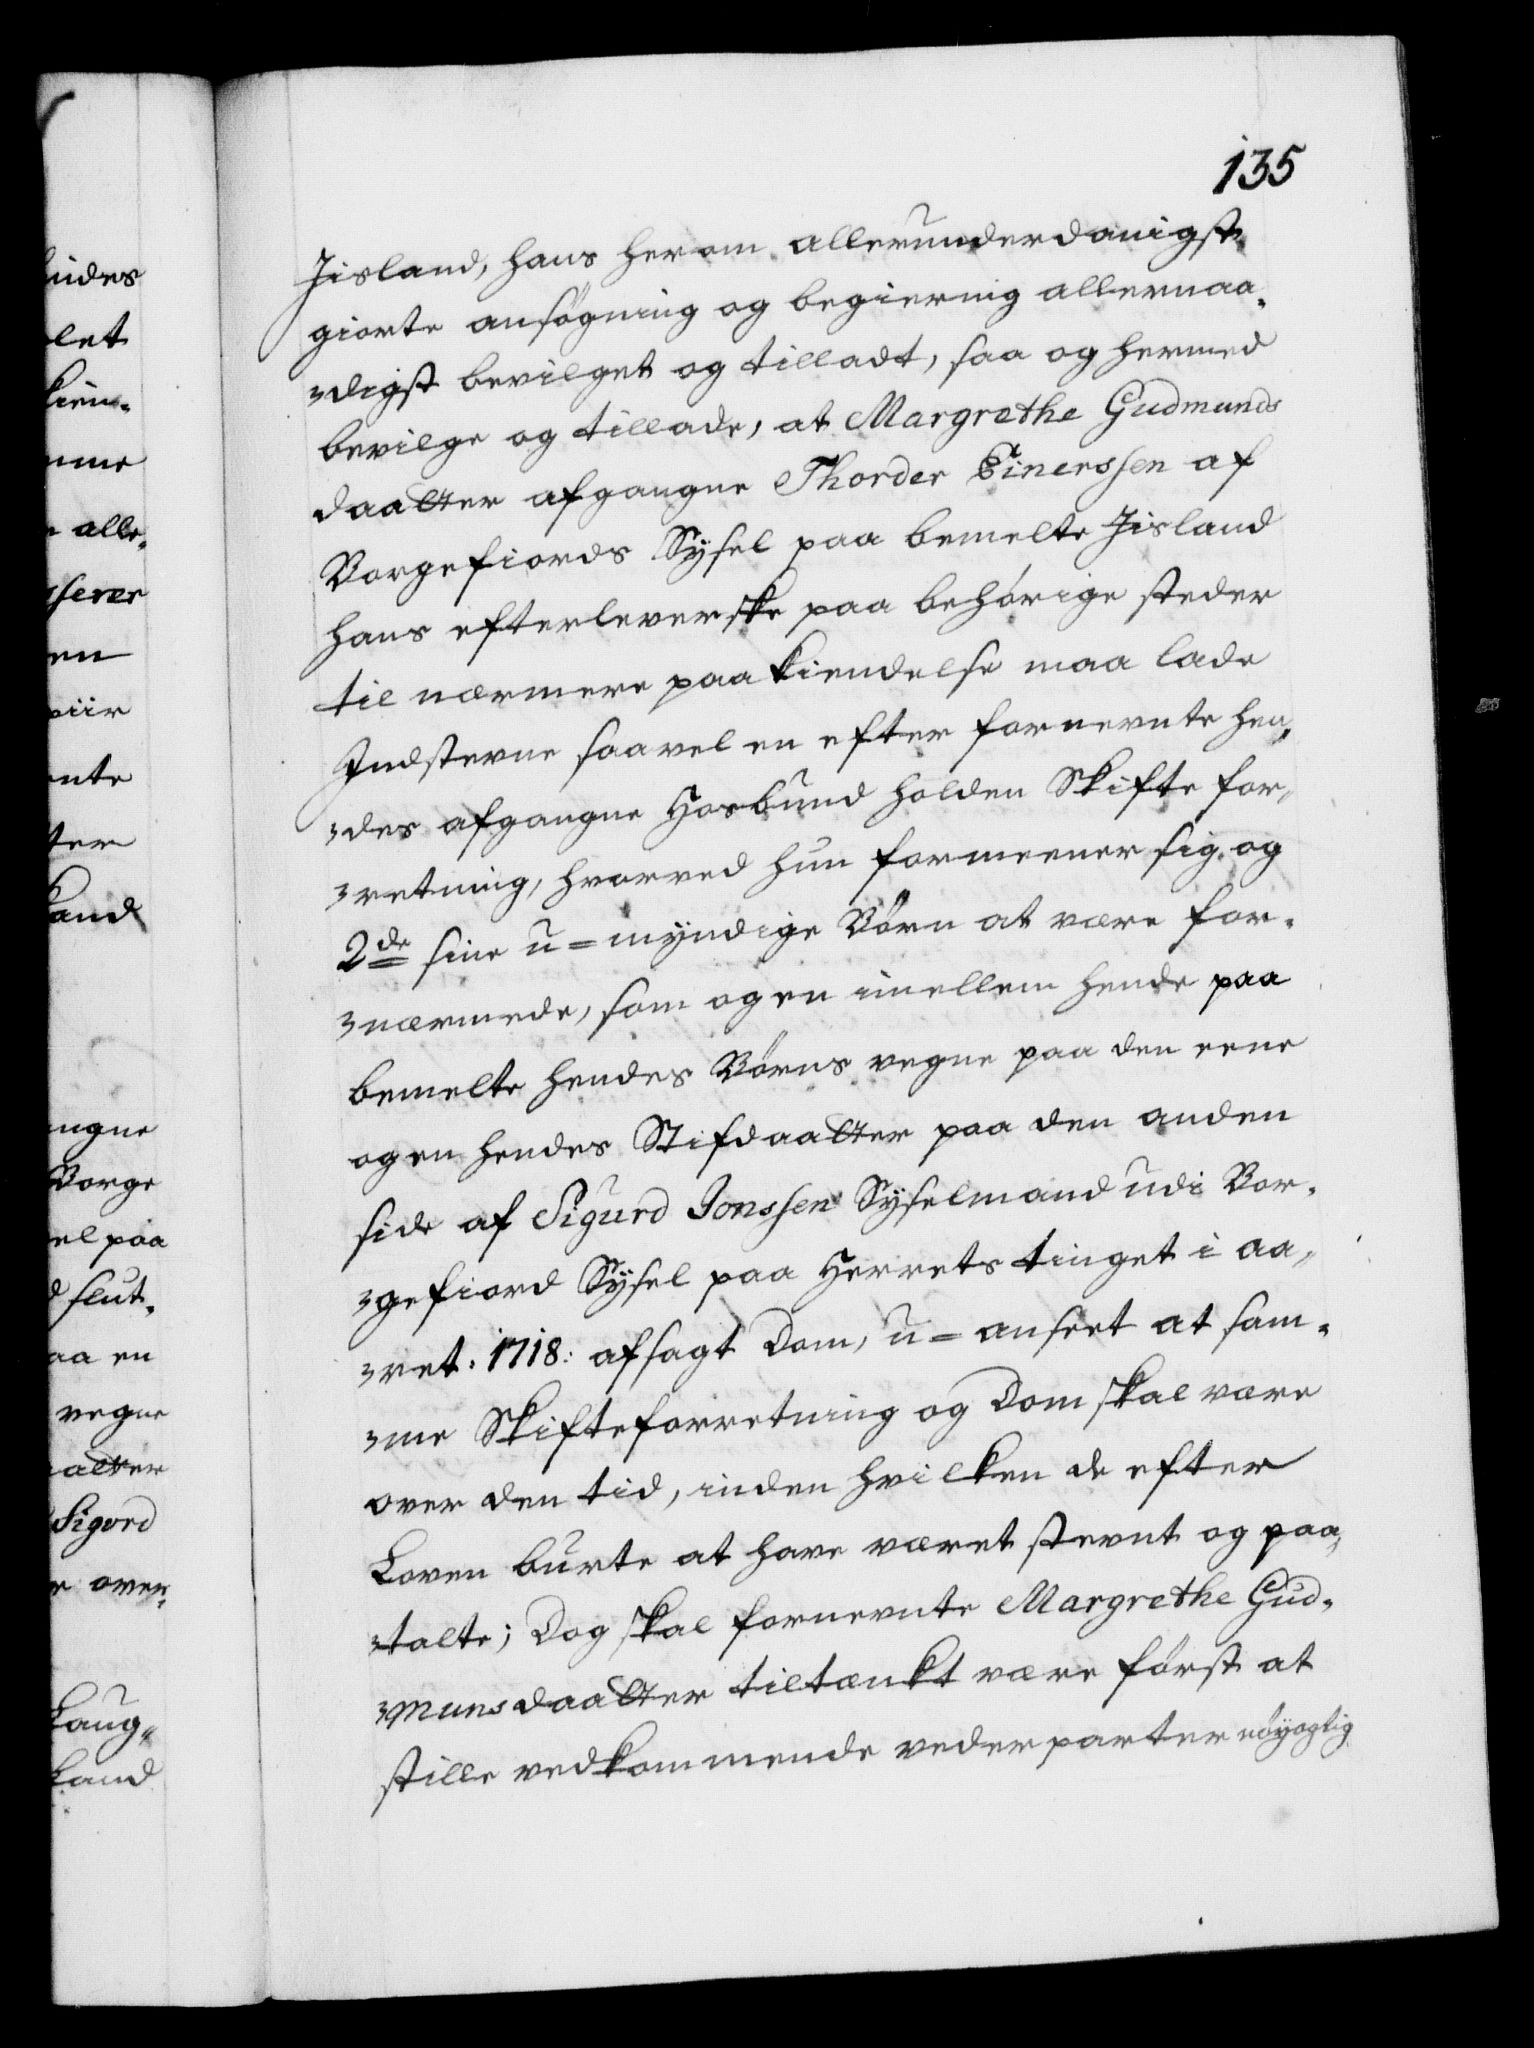 135
Jisland, hans herom allerunderdanigst
giorte ansøgning og begiering allernaa-
digst bevilget og tilladt, saa og hermed
bevilge og tillade, at Margrethe Gudmunds
daatter afgangne Thorder Einerssen af
Borgefiords Sysel paa bemelte Jisland
hans efterleverske paa behørige steder
til nærmere paakiendelse maa lade
Indstevne saavel en efter fornevnte hen-
des afgangne Hosbund holden Skifte for-
retning, hvorved hun formeener sig og
2de sine u=myndige Børn at være for-
nærmede, som og en imellem hende paa
bemelte hendes Børns vegne paa den eene
og en hendes Stifdaatter paa den anden
side af Sigurd Jonssen Syselmand udi Bor-
gefiord Sysel paa Herrets tinget i aa-
ret. 1718: afsagt Dom, u=anseet at sam-
me Skifteforretning og Dom skal være
over den tid, inden hvilken de efter
Loven burte at have været stevnt og paa-
talte; Dog skal fornevnte Margrethe Gud-
munsdaatter tiltænkt være først at
stille vedkommende vederparter nøyagtig
hendes
let
kien-
mme
alle-
sserer
en
piir
nte
ter
Land
ngne
Borge
el paa
d slut-
aa en
vegne
aatter
Sigord
r over-
Laug-
Land